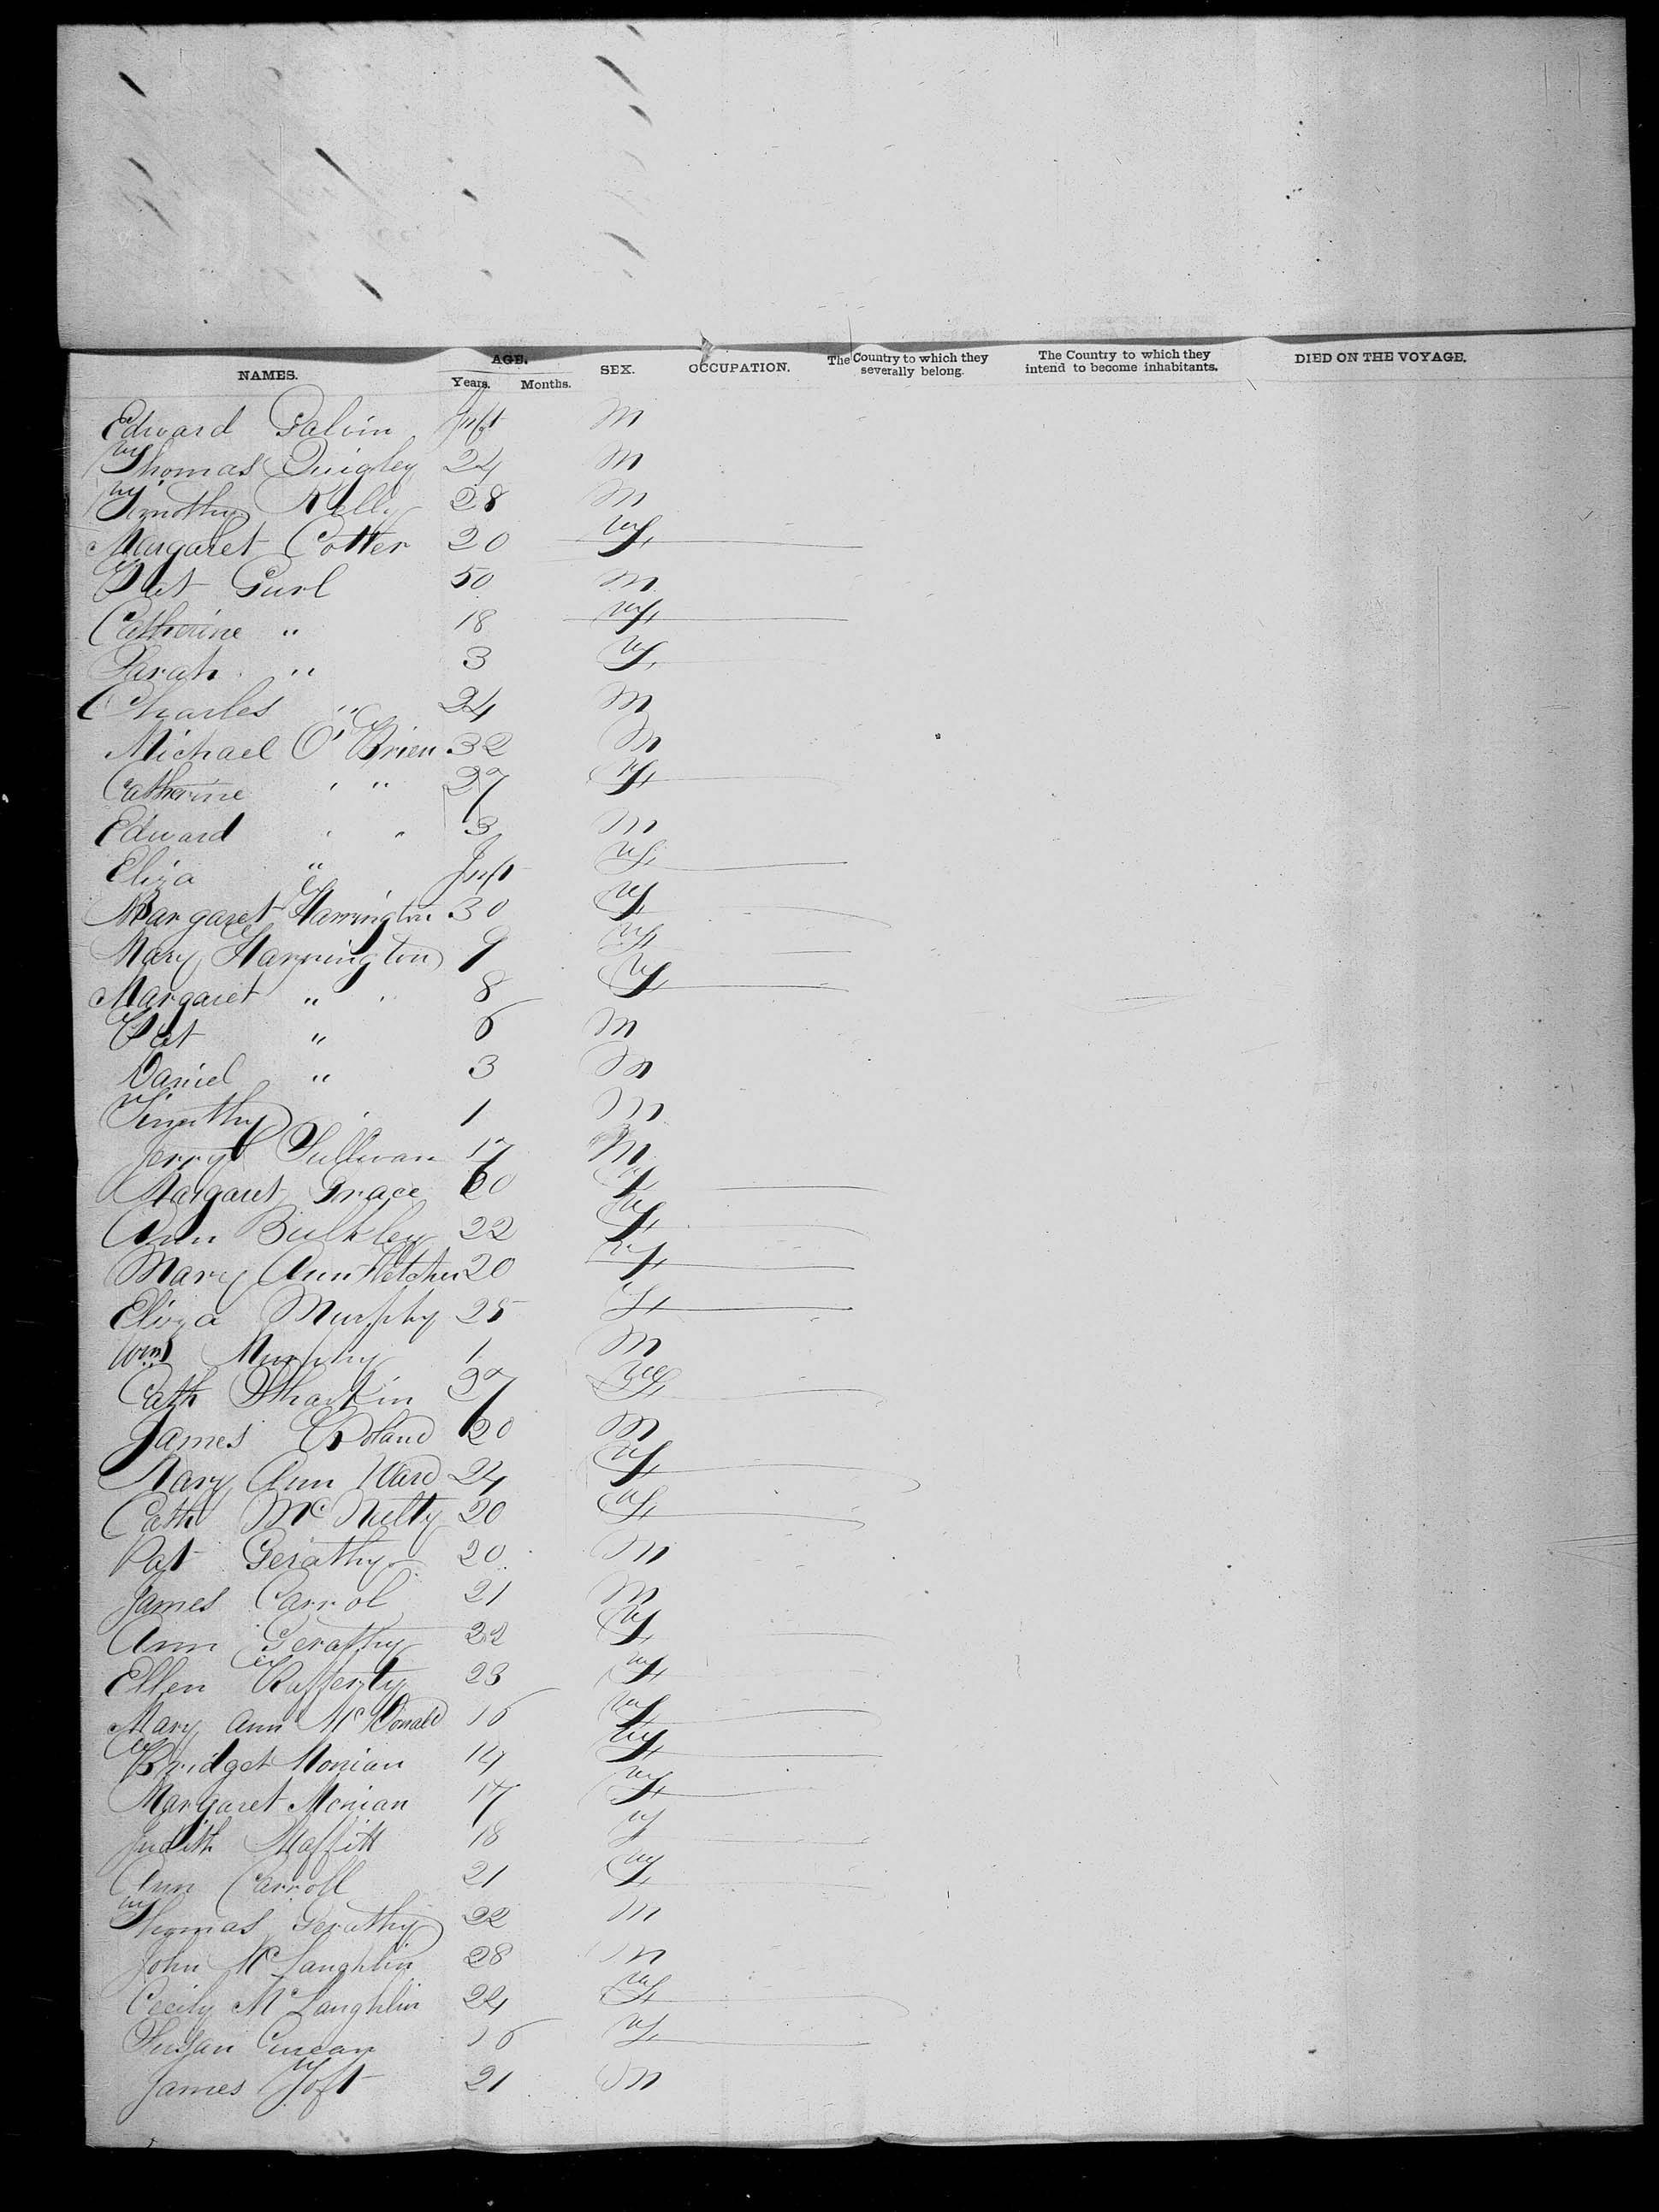 NAMES. AGE. Years. Months. SEX. OCCUPATION. The Country to which they severally belong. The Country to which they intend to become inhabitants. DIED ON THE VOYAGE.
Edward Galvin Inft M
Thomas Quigley 24 M
Timothy Kelly 28 M
Margaret Cotter 20 F
Pat Gurl 50 M
Catherine " 18 F
Sarah " 3 F
Charles " 24 M
Michael O'Brien 32 M
Catherine " " 27 F
Edward " " 3 M
Eliza " Inft F
Margaret Harrington 30 F
Mary Harrington 9 F
Margaret " " 8 F
Pat " 6 M
Daniel " 3 M
Timothy " 1 M
Jerry Sullivan 17 M
Margaret Grace 60 F
Ann Bulkley 22 F
Mary Ann Fletcher 20 F
Eliza Murphy 25 F
Wm Murphy 1 M
Cath Sharkin 27 F
James Boland 20 M
Mary Ann Ward 24 F
Cath McNulty 20 F
Pat Gerathy 20 M
James Carrol 21 M
Ann Gerathy 22 F
Ellen Rafferty 23 F
Mary Ann McDonald 16 F
Bridget Monian 14 F
Margaret Monian 17 F
Judith Maffitt 18 F
Ann Carroll 21 F
Thomas Gerathy 22 M
John McLaughlin 28 M
Cecily McLaughlin 24 F
Susan 16 F
James Toft 21 M